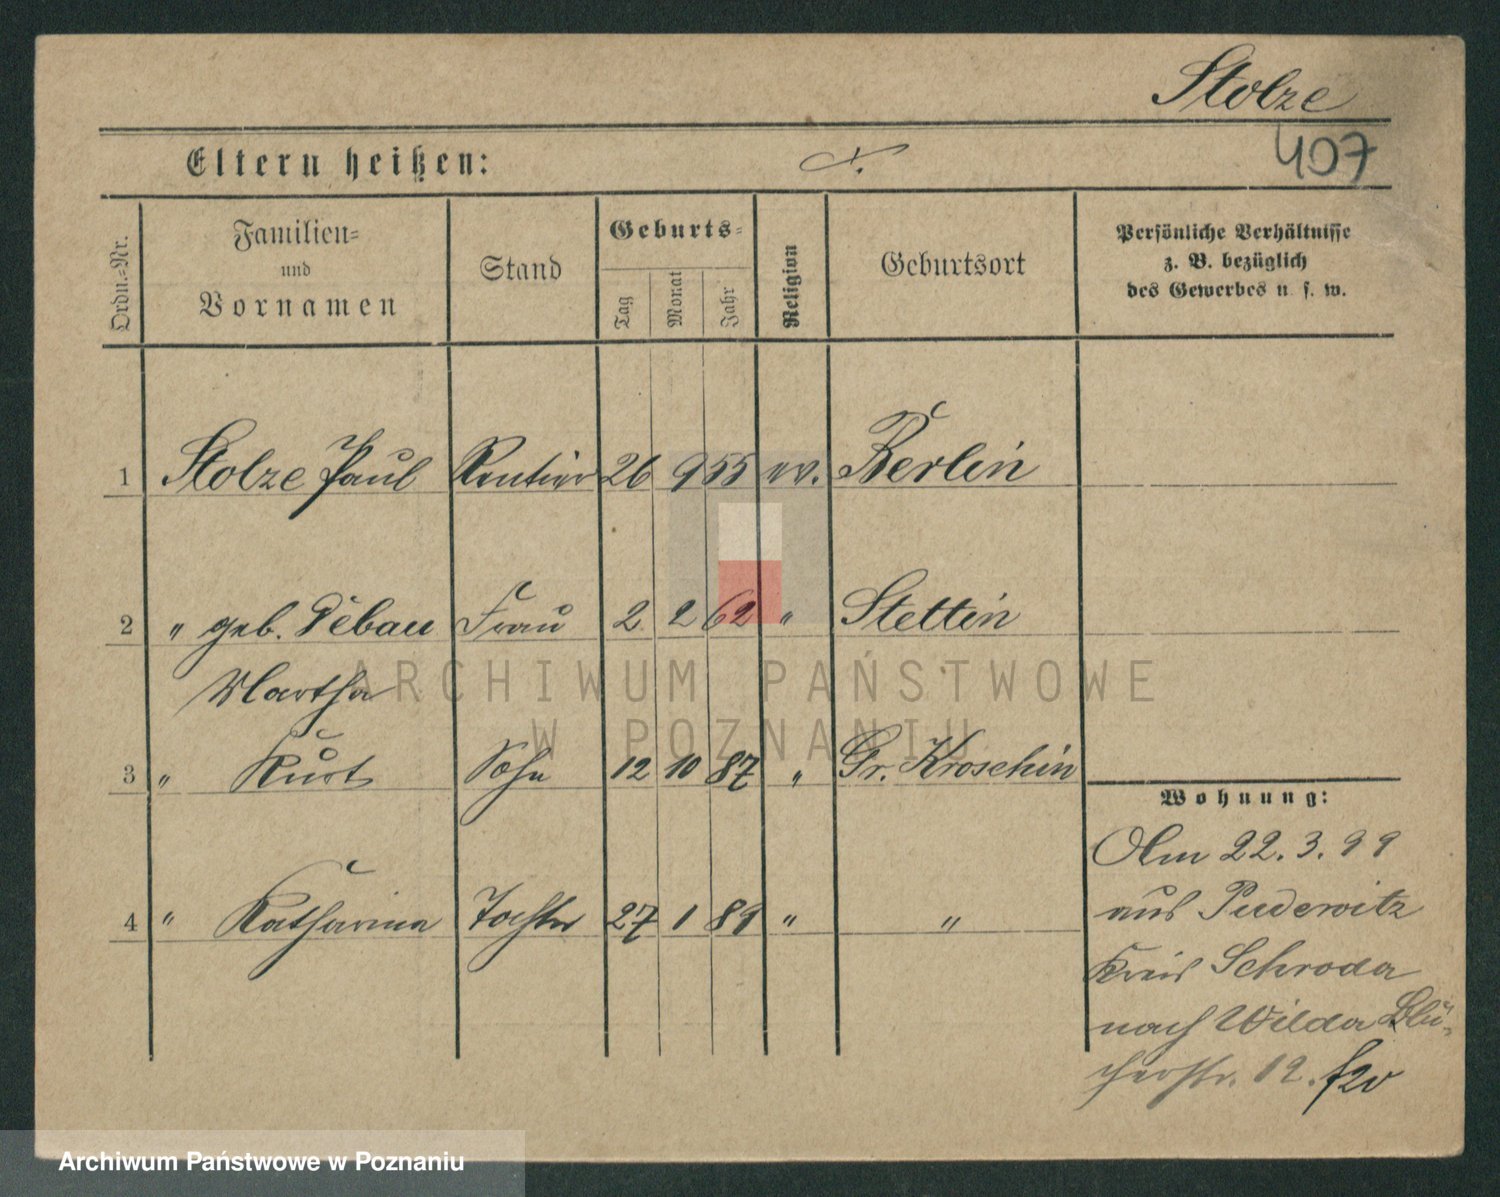 Stolze
407
Eltern heißen:
Ordn.=Nr.
Familien=
und
Vornamen
Stand
Geburts=
Tag
Monat
Jahr
Religion
Geburtsort
Persönliche Verhältnisse
z. B. bezüglich
des Gewerbes u. s. w.
1 Stolze Paul Rentier 26 9 55 ev. Berlin
2 " geb. Debau Frau 2 2 62 " Stettin
Martha
3 " Kurt Sohn 12 10 87 " Gr. Kroschin
4 " Katharina Tochter 27 1 89 " "
Wohnung:
Am 22.3.99
aus Pudewitz
Kreis Schroda
nach Wilda Blü-
cherstr. 12.
ARCHIWUM PAŃSTWOWE
W POZNANIU
Archiwum Państwowe w Poznaniu